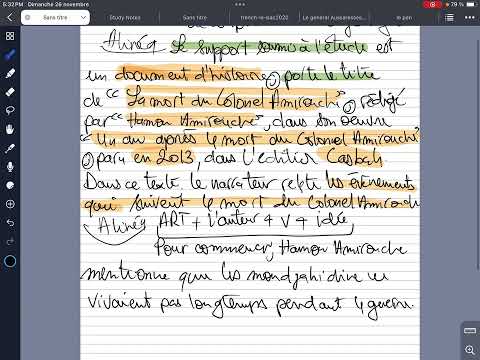 5:32 PM Dimanche 26 novembre
79 %
Sans titre
Study Notes
Sans titre
french-le-bac2020
Le général Aussaresses...
le pen
Alinéa Le support soumis à l'étude est
un document d'histoire, porte le titre
de "La mort du Colonel Amirouch", rédigé
par "Hamou Amirouche", dans son oeuvre
"Un an après le mort du Colonel Amirouch"
paru en 2013, dans l'édition Casbah
Dans ce texte, le narrateur relate les événements
qui suivent le mort du Colonel Amirouche
Alinéa ART + l'auteur + V + idée
Pour commencer, Hamou Amirouche
mentionne que les moudjahidine ne
vivaient pas longtemps pendant la guerre.